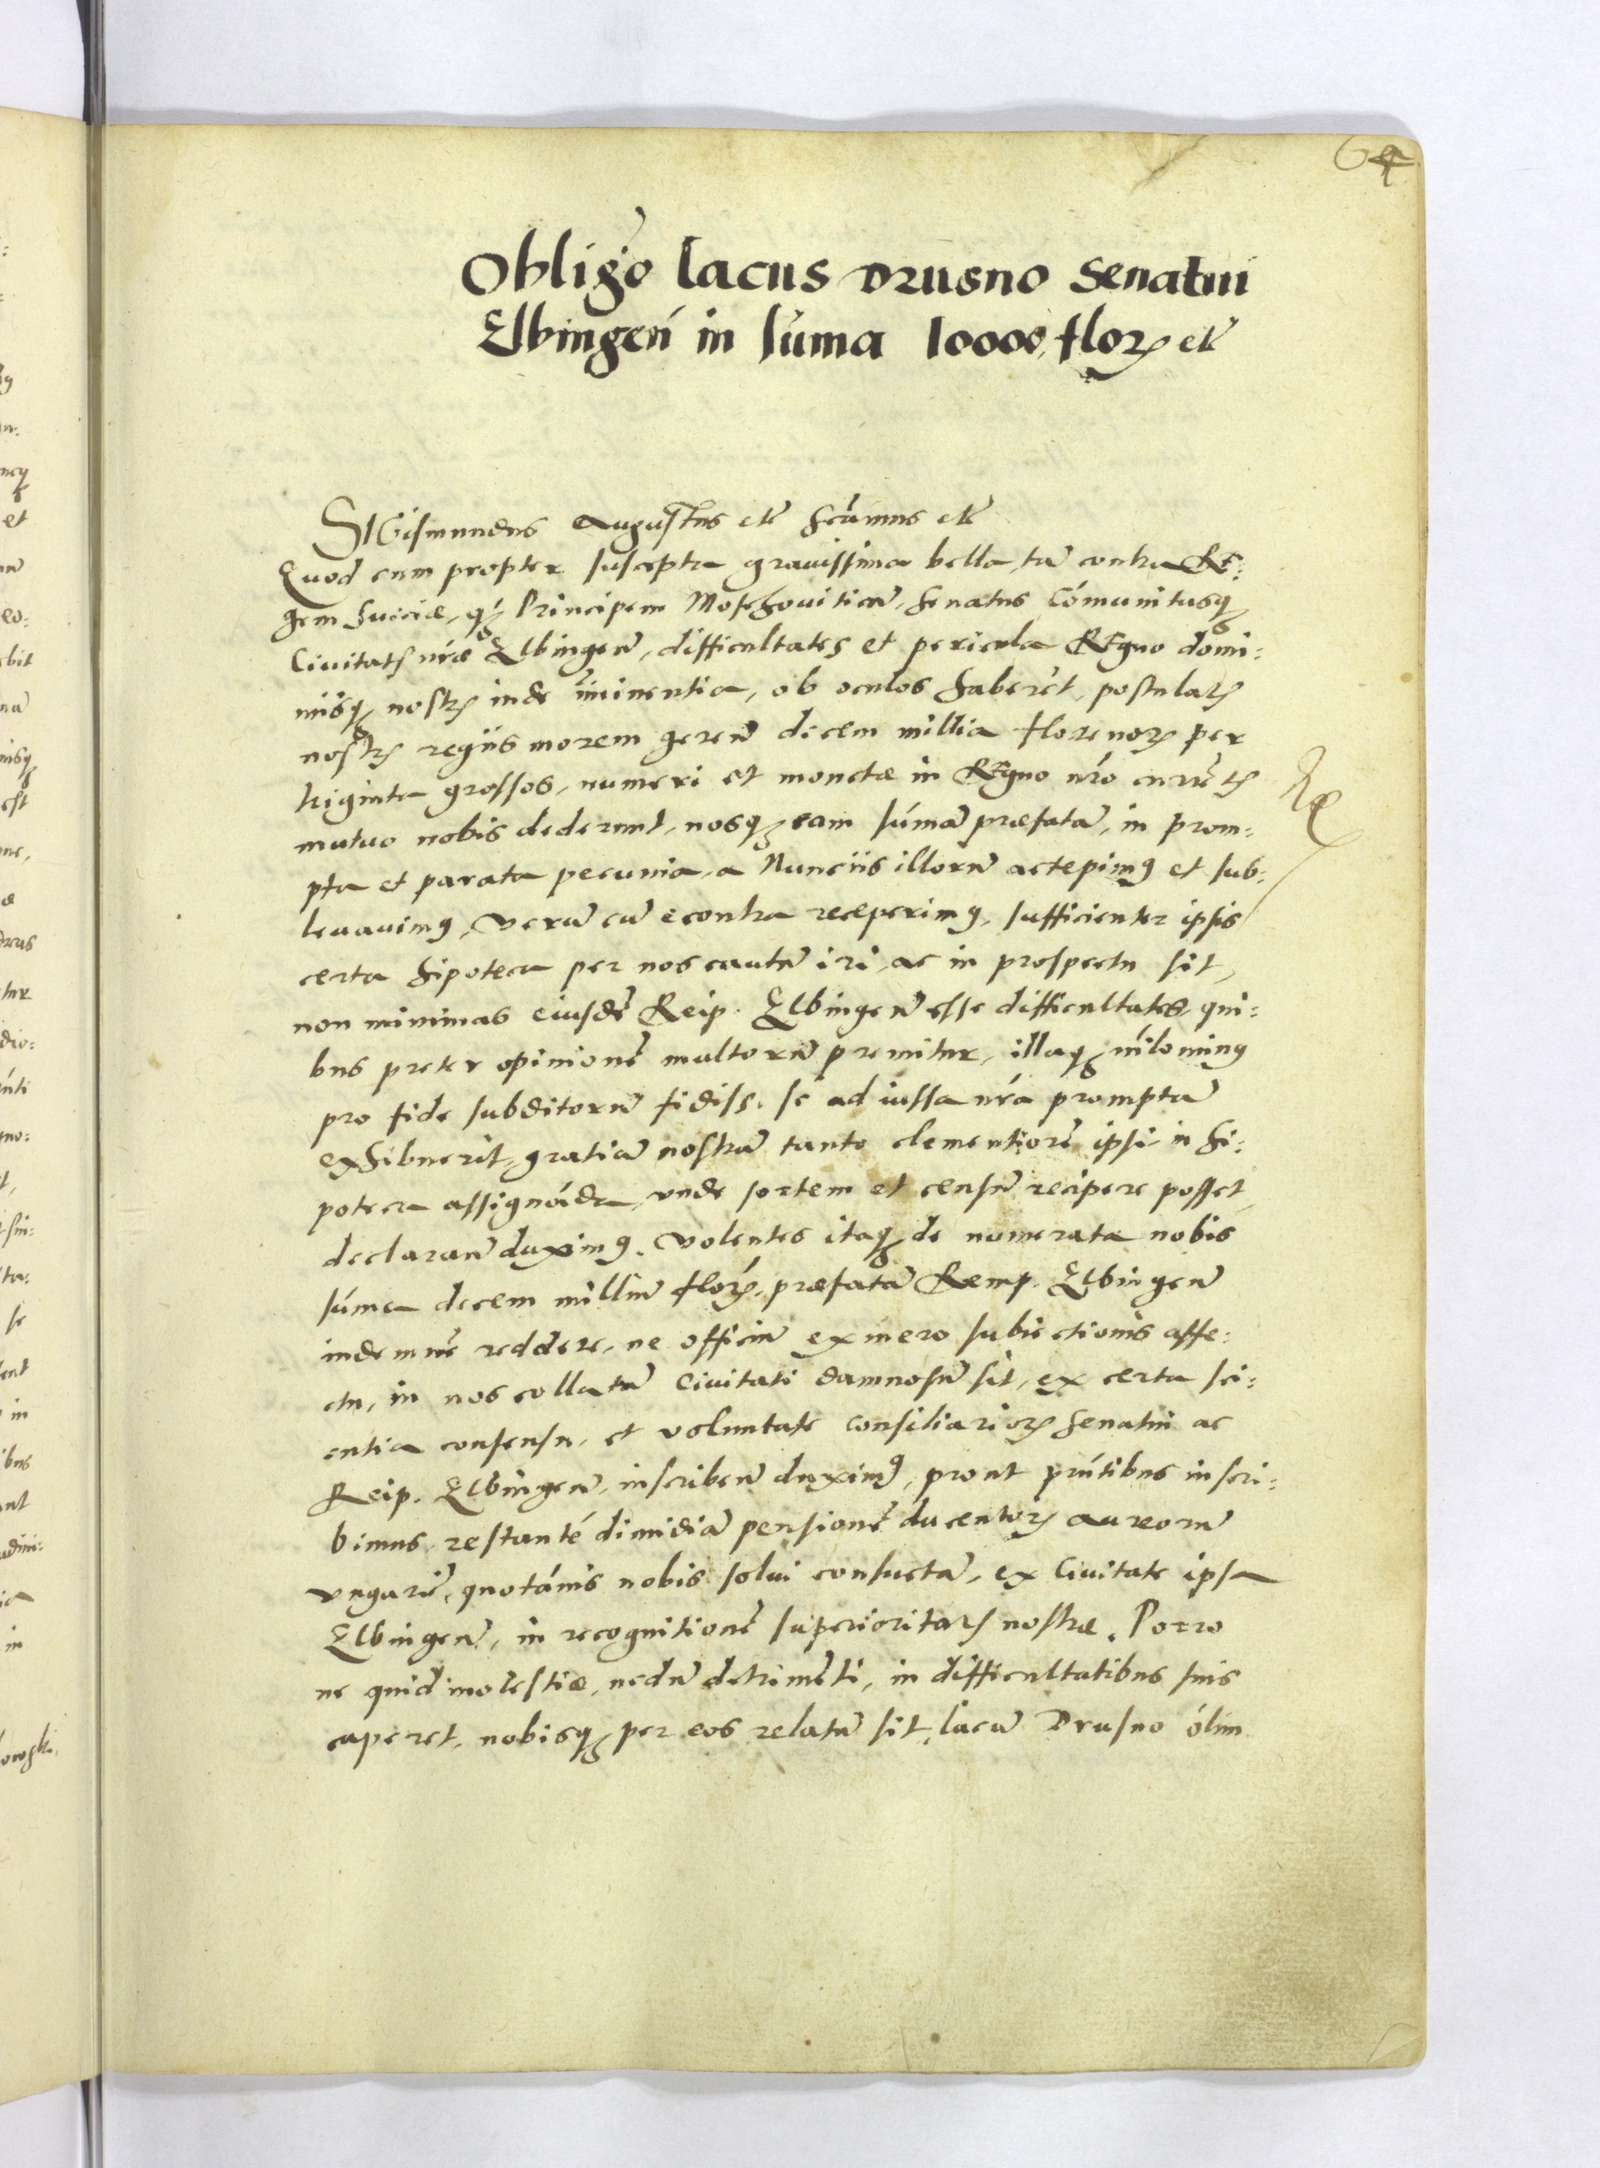 64
Obligo lacus Drusno Senatui
Elbingen in suma 10000 flor etc
Sigismundus Augustus etc scimus etc
Quod cum propter suscepta gravissima bella tã contra Re:
gem Sueciæ, q̃ Principem Moschouiticũ, senatus Cómunitasq
Ciuitatis nr̃æ Elbingeñ, difficultates et pericula Regno domi:
niisq nostris inde im̃inentia, ob oculos haberet, postulatis
nostris regiis morem gereñ decem millia florenorum per
triginta grossos, numeri et monetæ in Regno nr̃o curreñtis
mutuo nobis dederunt, nosq eam súmã præfatã, in prom:
pta et parata pecunia, a Nunciis illorũ accepimus et sub:
leuauimus, verũ cũ econtra receperimus, sufficienter ipsis
certa hipoteca per nos cautũ iri, ac in prospectu sit,
non minimas eiusdẽ Reip. Elbingeñ esse difficultates, qui:
bus preter opinionẽ multorũ premitur, illaq nihlominus
pro fide subditorũ fidiss. se ad iussa nr̃a promptã
exhibuerit, gratiã nostrã tanto clementiorẽ ipsi in hi:
poteca assignãda, vnde sortem et censũ recipere posset,
declarañ duximus. Volentes itaq de numerata nobis
súma decem milliũ flor, præfatã Remp. Elbingeñ
indemnẽ reddere, ne officiũ ex mero subiectionis affe:
ctu, in nos collatũ Ciuitati damnosũ sit, ex certa sci:
entia consensu, et voluntate Consiliariorum senatui ac
Reip. Elbingeñ, inscribeñ duximus, prout pr̃ntibus inscri:
bimus, restanté dimidiã pensionẽ ducentorum aureorũ
vngariẽ, quotánis nobis solui consuetã, ex Ciuitate ipsa
Elbingeñ, in recognitionẽ superioritatis nostræ. Porro
ne quid molestiæ, nedũ detrimẽti, in difficultatibus suis
caperet, nobisq per eos relatũ sit, lacũ Drusno ólim